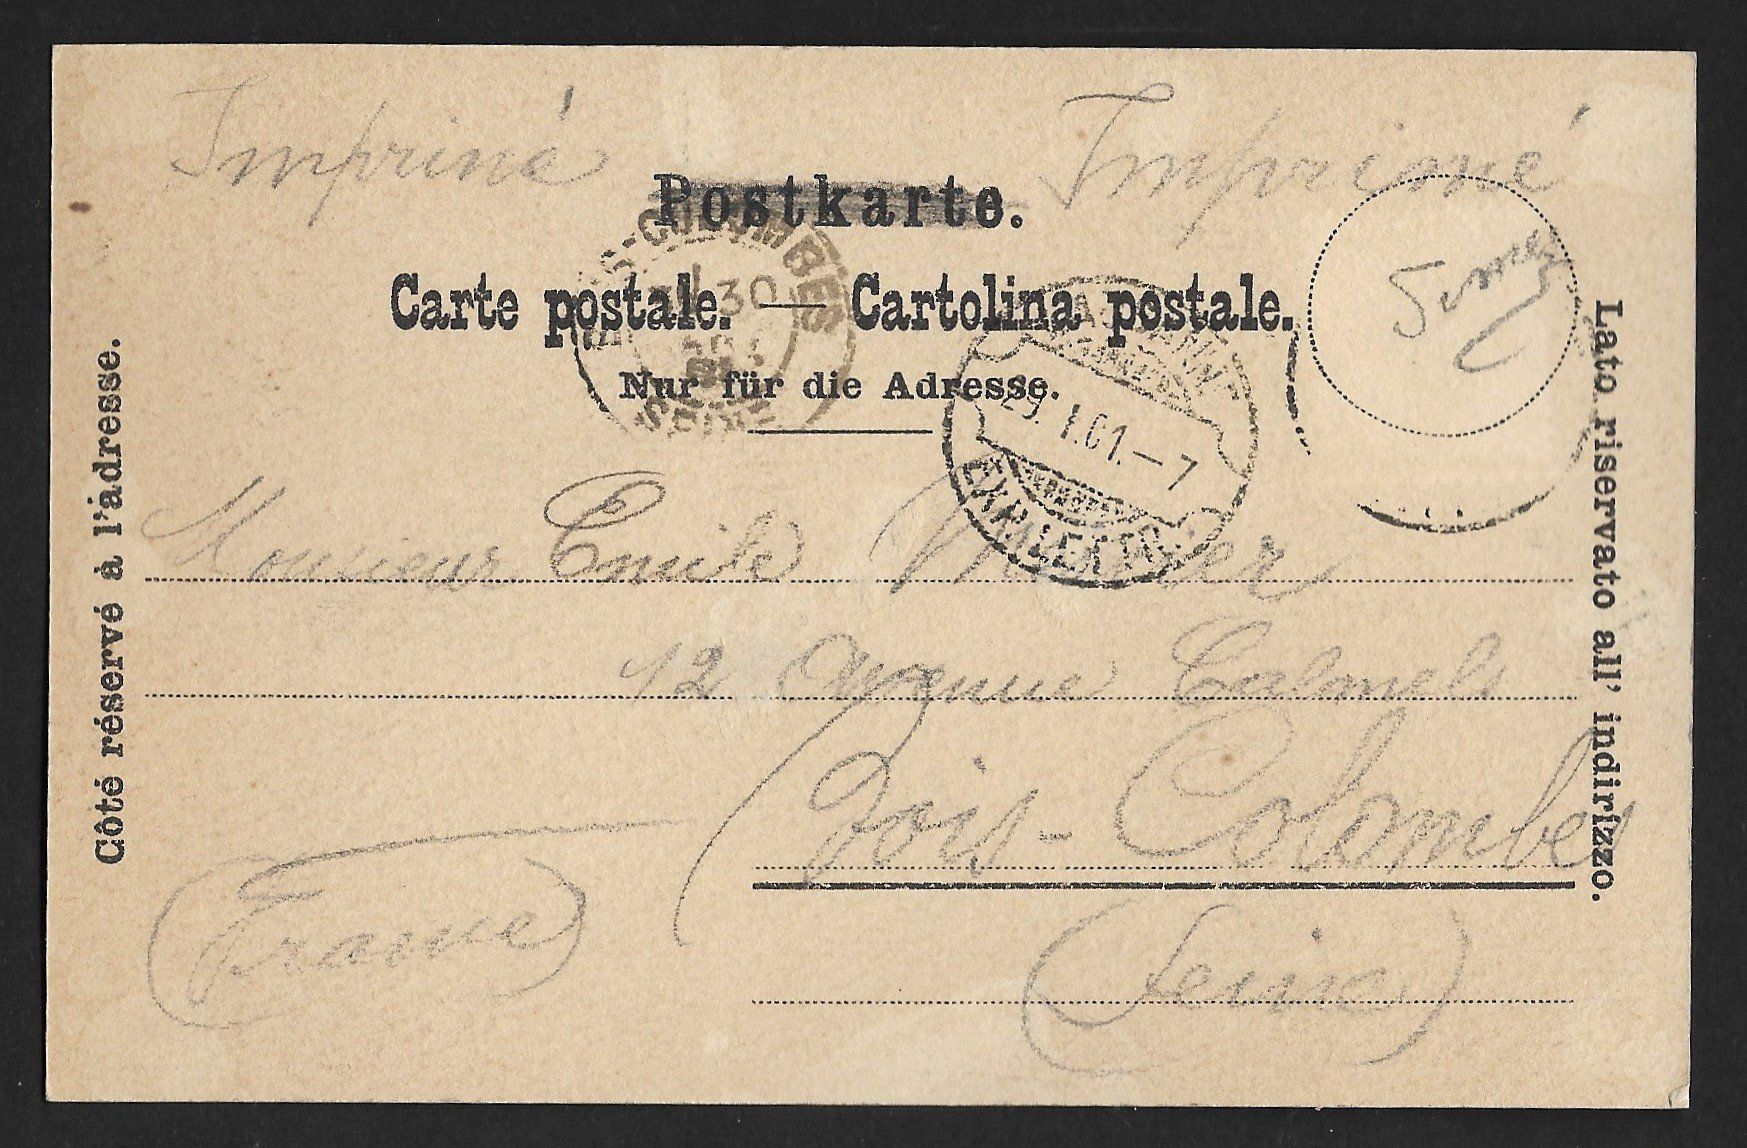 Imprimé Imprimé
Postkarte.
Carte postale. — Cartolina postale.
Nur für die Adresse.
Côté réservé à l'adresse.
Lato riservato all' indirizzo.
29. I.01.–7
30
SEINE
Monsieur Emile
12 Avenue Calmels
Bois-Colombes
(Seine)
(France)